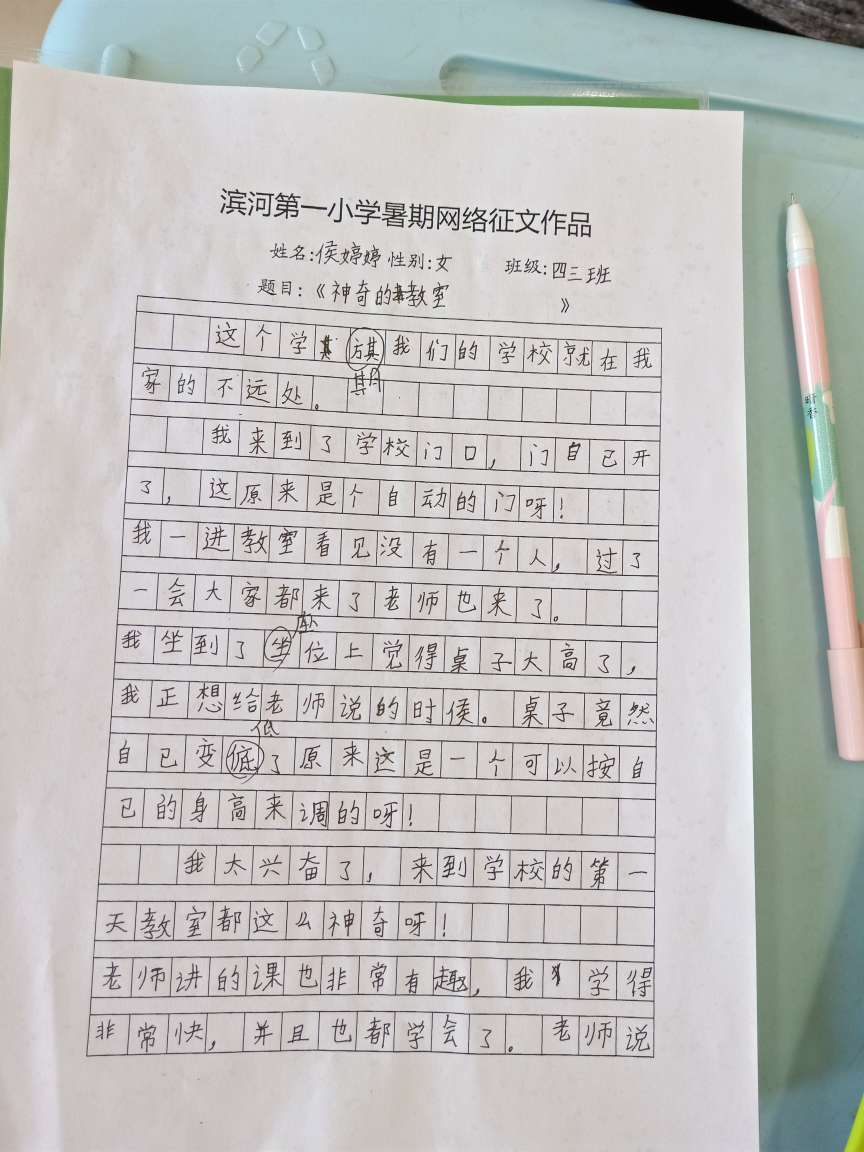 滨河第一小学暑期网络征文作品
姓名:侯婷婷 性别:女 班级:四三班
题目:《神奇的教室 》
这个学旗我们的学校就在我
期
家的不远处。
我来到了学校门口，门自己开
了，这原来是个自动的门呀！
我一进教室看见没有一个人，过了
一会大家都来了老师也来了。
座
我坐到了坐位上觉得桌子太高了，
我正想给老师说的时候。桌子竟然
低
自已变倨了原来这是一个可以按自
已的身高来调的呀！
我太兴奋了，来到学校的第一
天教室都这么神奇呀！
老师讲的课也非常有趣，我学得
非常快，并且也都学会了。老师说